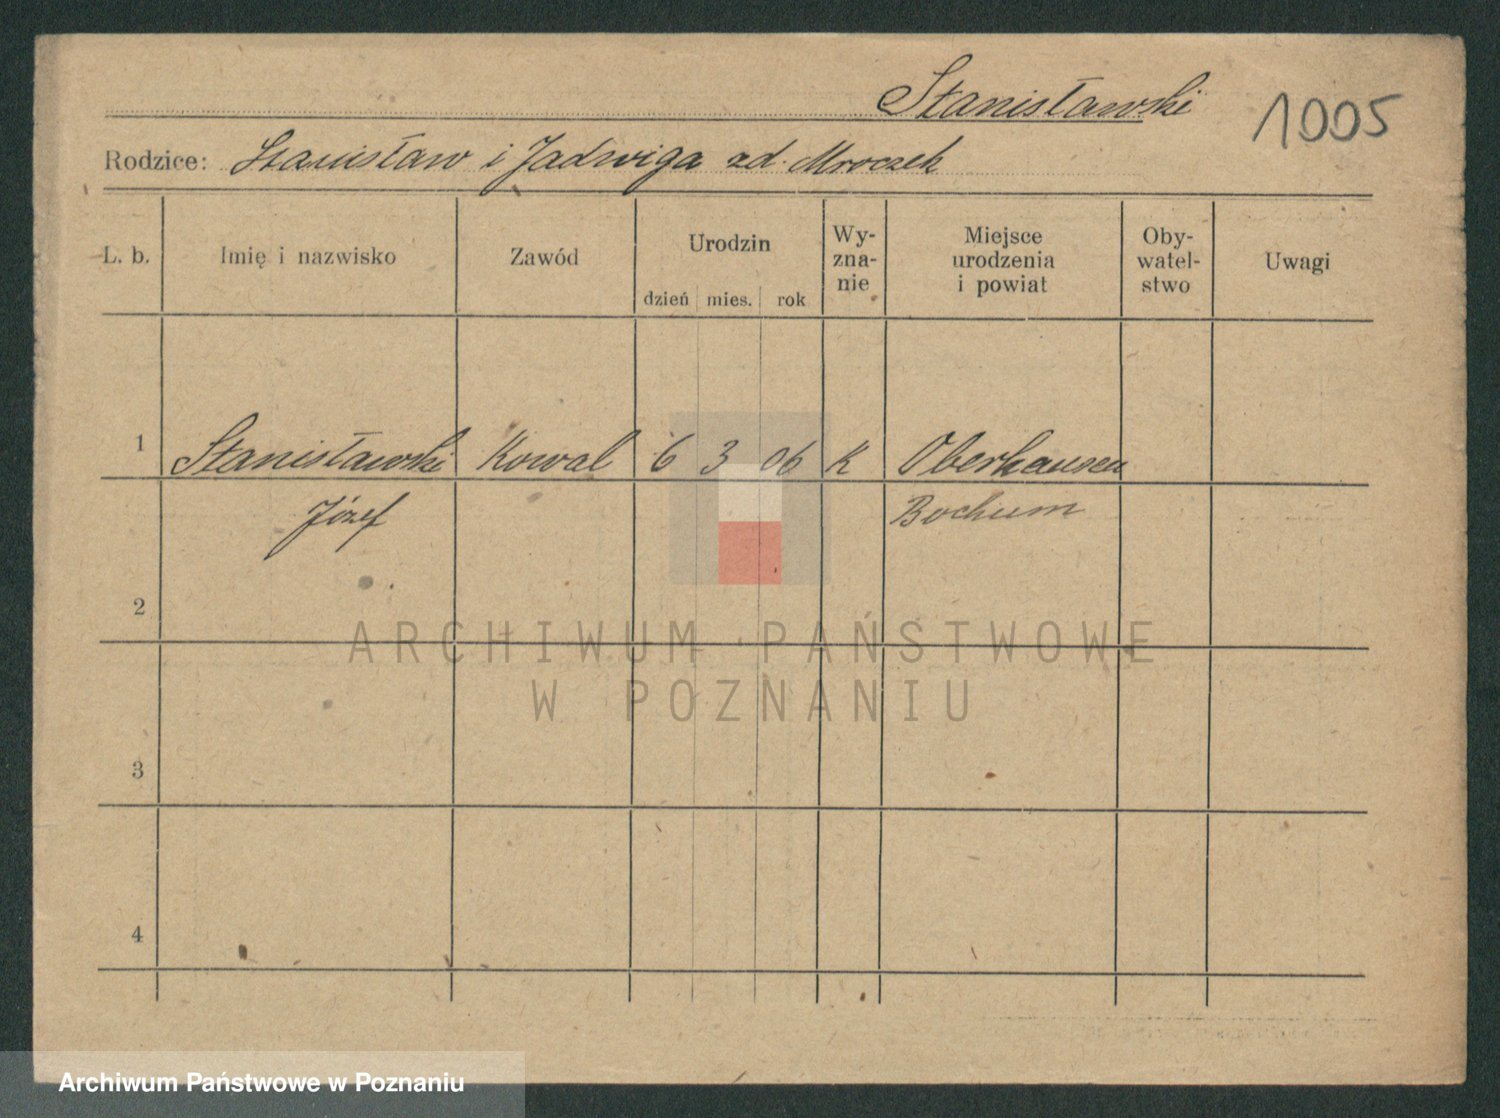 Stanisławski
1005
Rodzice: Stanisław i Jadwiga zd. Mroczek
L. b. Imię i nazwisko Zawód Urodzin dzień mies. rok Wy-zna-nie Miejsce urodzenia i powiat Oby-watel-stwo Uwagi
1 Stanisławski Kowal 6 3 06 K Oberhausen
Józef Bochum
2
3
4
ARCHIWUM PAŃSTWOWE
W POZNANIU
Archiwum Państwowe w Poznaniu